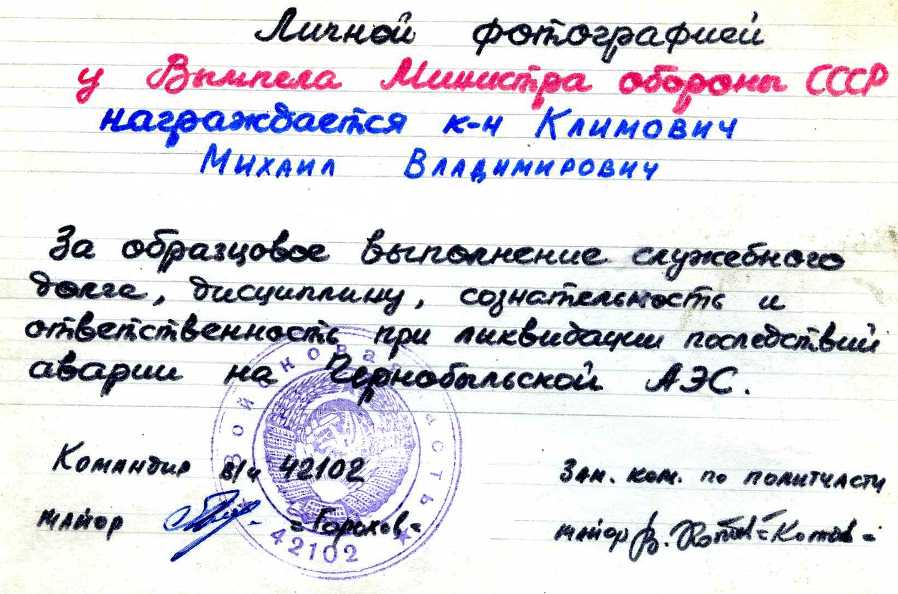 Личной фотографией
у Вымпела Министра обороны СССР
награждается к-н Климович
Михаил Владимирович
За образцовое выполнение служебного
долга, дисциплину, сознательность и
ответственность при ликвидации последствий
аварии на Чернобыльской АЭС.
Командир в/ч 42102
Зам. ком. по политчасти
майор =Горохов=
майор В. Котов =Котов=
Войсковая часть
42102